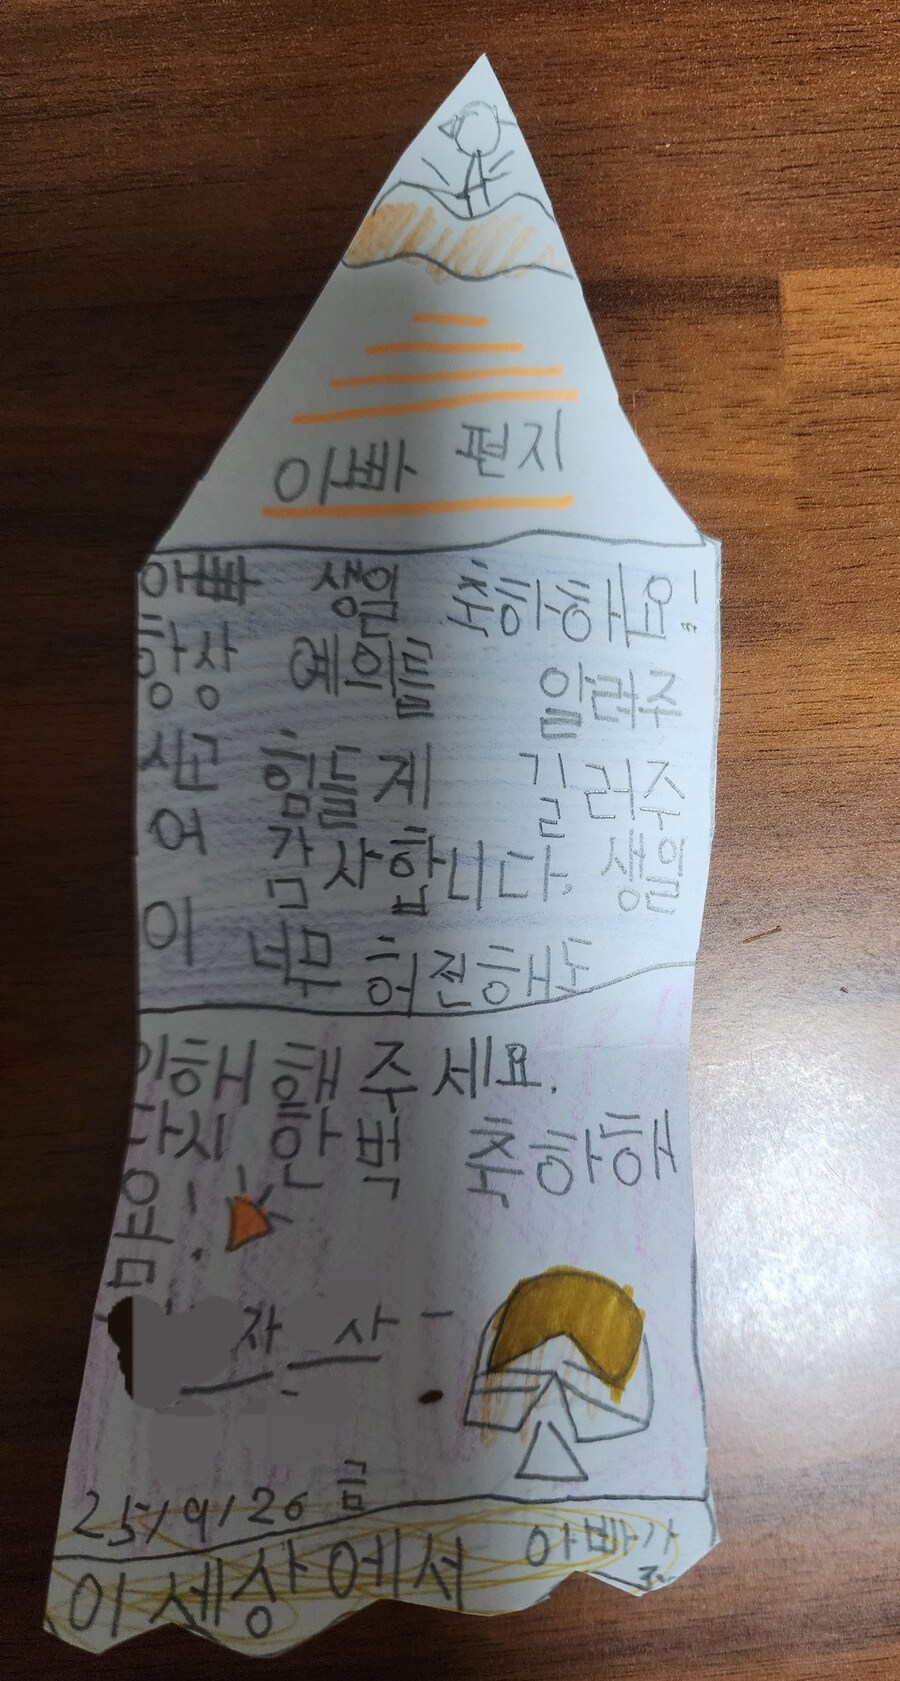 아빠 편지
아빠 생일 축하해요!
항상 예의를 알려주
시고 힘들게 길러주
어 감사합니다. 생일
이 너무 허전해도
이해해 주세요.
다시 한번 축하해
25/9/26 금
이 세상에서 아빠가